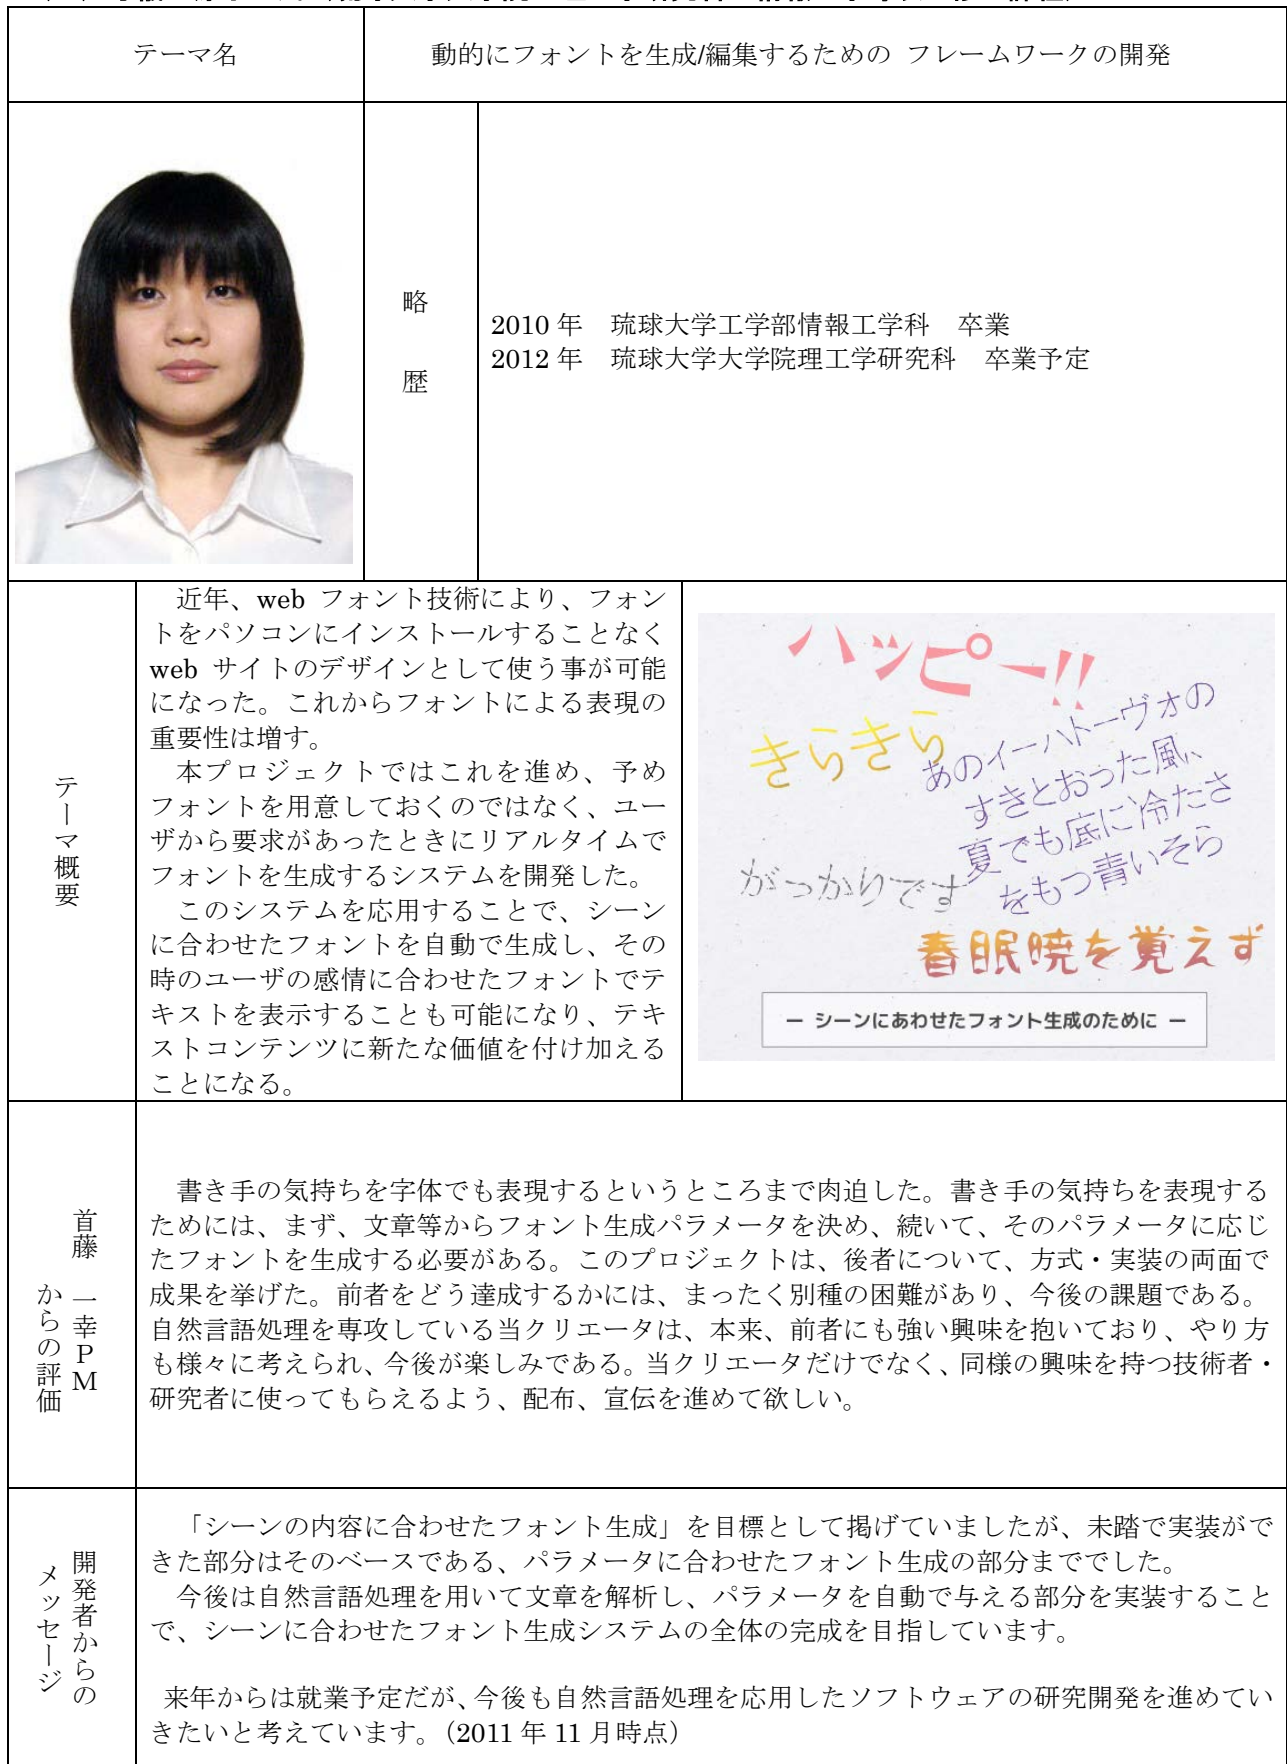 テーマ名
動的にフォントを生成/編集するための フレームワークの開発
略歴
2010 年　琉球大学工学部情報工学科　卒業
2012 年　琉球大学大学院理工学研究科　卒業予定
テーマ概要
近年、web フォント技術により、フォン
トをパソコンにインストールすることなく
web サイトのデザインとして使う事が可能
になった。これからフォントによる表現の
重要性は増す。
本プロジェクトではこれを進め、予め
フォントを用意しておくのではなく、ユー
ザから要求があったときにリアルタイムで
フォントを生成するシステムを開発した。
このシステムを応用することで、シーン
に合わせたフォントを自動で生成し、その
時のユーザの感情に合わせたフォントでテ
キストを表示することも可能になり、テキ
ストコンテンツに新たな価値を付け加える
ことになる。
ハッピー!!
きらきら
あのイーハトーヴォの
すきとおった風、
夏でも底に冷たさ
をもつ青いそら
がっかりです
春眠暁を覚えず
ー シーンにあわせたフォント生成のために ー
首藤 一幸ＰＭ
からの評価
書き手の気持ちを字体でも表現するというところまで肉迫した。書き手の気持ちを表現する
ためには、まず、文章等からフォント生成パラメータを決め、続いて、そのパラメータに応じ
たフォントを生成する必要がある。このプロジェクトは、後者について、方式・実装の両面で
成果を挙げた。前者をどう達成するかには、まったく別種の困難があり、今後の課題である。
自然言語処理を専攻している当クリエータは、本来、前者にも強い興味を抱いており、やり方
も様々に考えられ、今後が楽しみである。当クリエータだけでなく、同様の興味を持つ技術者・
研究者に使ってもらえるよう、配布、宣伝を進めて欲しい。
開発者からの
メッセージ
「シーンの内容に合わせたフォント生成」を目標として掲げていましたが、未踏で実装がで
きた部分はそのベースである、パラメータに合わせたフォント生成の部分まででした。
今後は自然言語処理を用いて文章を解析し、パラメータを自動で与える部分を実装すること
で、シーンに合わせたフォント生成システムの全体の完成を目指しています。
来年からは就業予定だが、今後も自然言語処理を応用したソフトウェアの研究開発を進めてい
きたいと考えています。（2011 年 11 月時点）